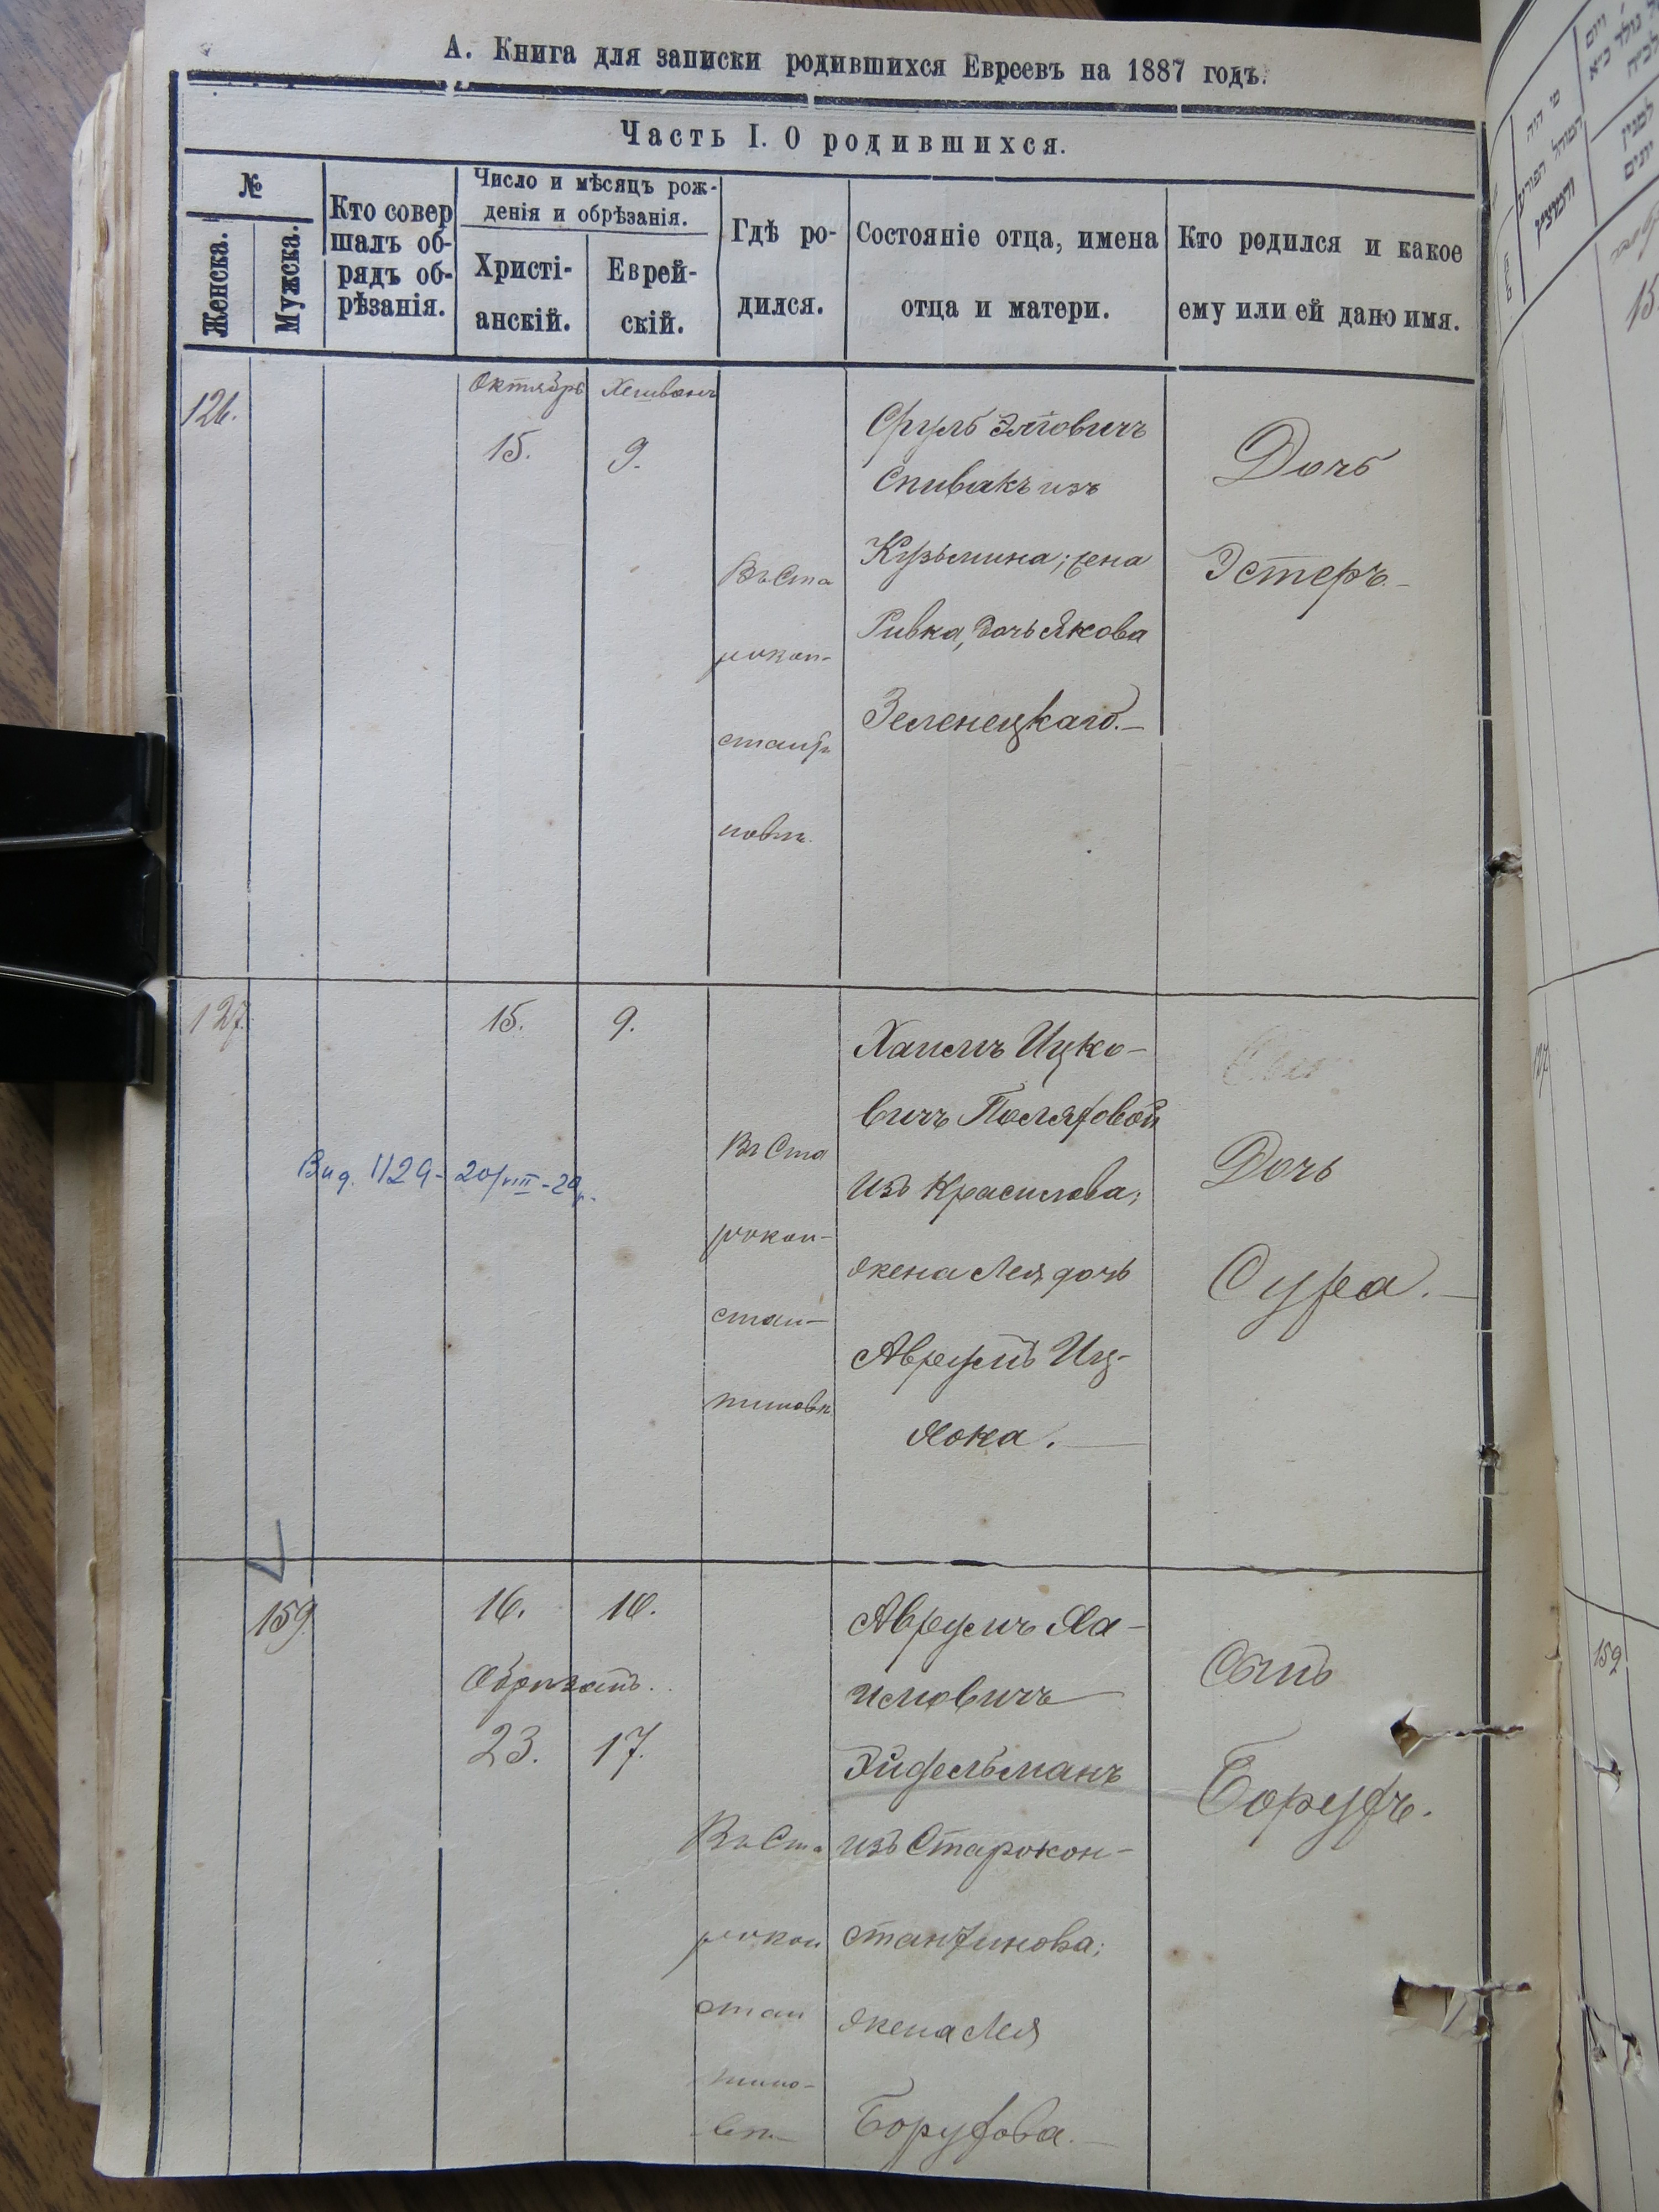 А. Книга для записки родившихся Евреевъ на 1887 годъ.
Часть I. О родившихся.
№
Женска.
Мужска.
Кто совер
шалъ об-
рядъ об-
рѣзанія.
Число и мѣсяцъ рож-
денія и обрѣзанія.
Христі-
анскій.
Еврей-
скій.
Гдѣ ро-
дился.
Состояніе отца, имена
отца и матери.
Кто родился и какое
ему или ей дано имя.
126.
Октябрь
15.
Хешванъ
9.
Въ Ста
рокон-
нов
Сруль
Спивакъ изъ
Кузьмина; жена
Ривка, дочь Якова
Зеленецкаго.—
Дочь
Эстеръ.—
127.
Вид. 1129 - 20/VIII - 29 г.
15.
9.
Въ Ста
рокон-
стан-
тиновѣ
Хаимъ Ицко-
вичъ Поляховой
изъ Красилова;
жена Лея дочь
Аврумъ Иц-
хока.—
Дочь
Сура.—
159.
16.
10.
Обрѣзанъ.
23.
17.
Въ Ста
рокон
стан
тино-
вѣ
Аврумъ Ха-
имовичъ
Эйдельманъ
изъ Старокон-
стантинова;
жена Лея
Борухова.—
Сынъ
Борухъ.
15.
127
159